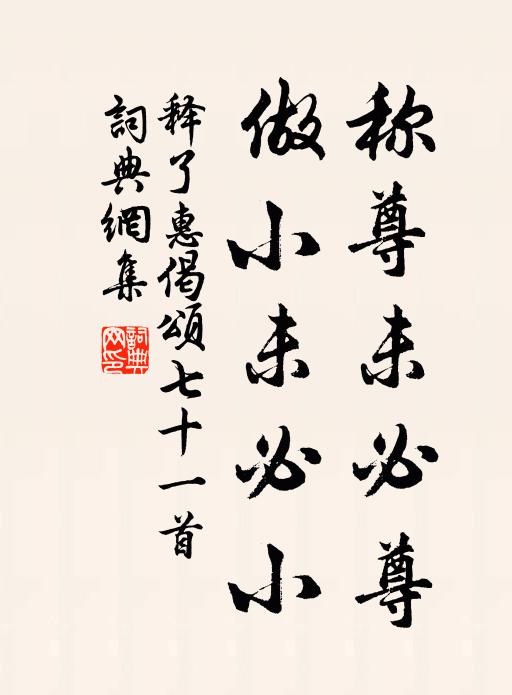 称尊未必尊
做小未必小
释了惠偈颂七十一首
詞典網集
詞典
网印